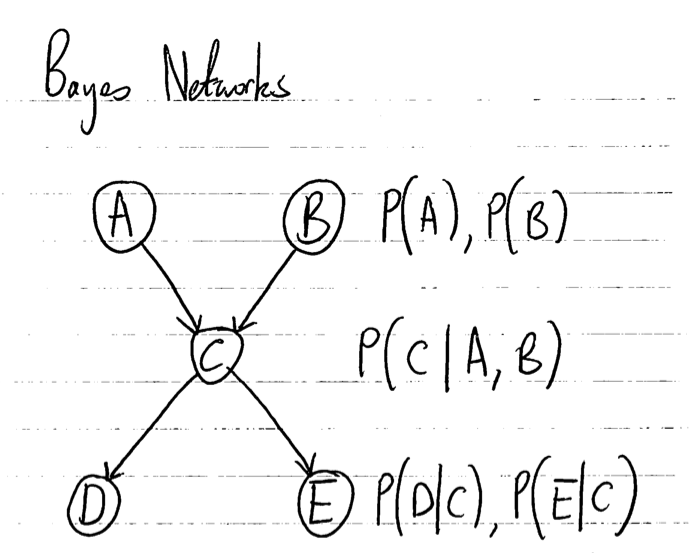 Bayes Networks
A B P(A), P(B)
C P(C|A, B)
D E P(D|C), P(E|C)